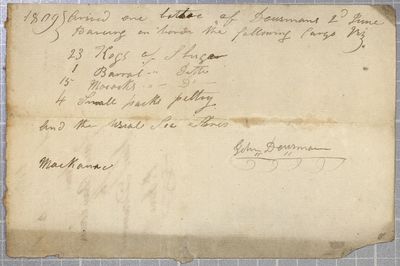 1809 } Arived one batteau of Dousmans 2d June
Having on board the following Cargo Viz.
23 Kegs of Shugar
1 Barrel " Ditto
15 Macocks " Do
4 Small packs peltry
And the usual Sea Stores
John Dousman
Mackanac